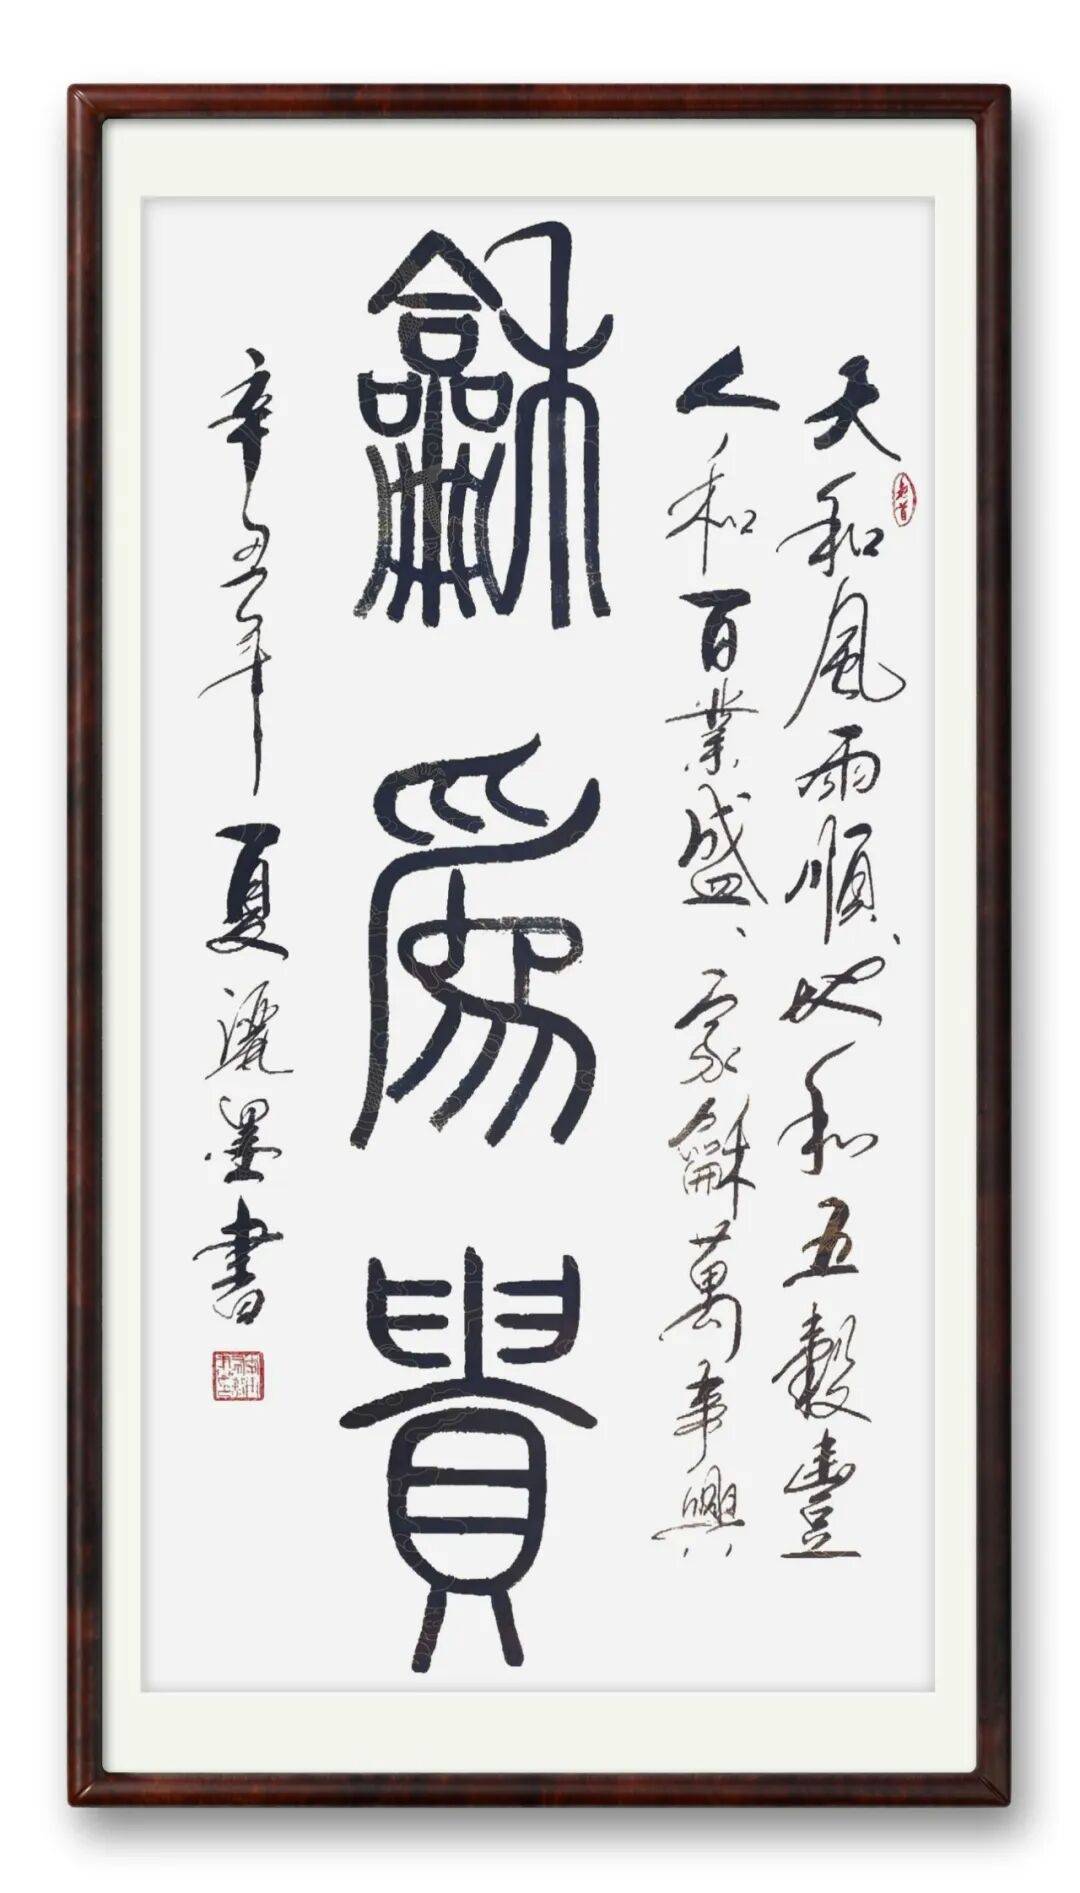 天和風雨順地和五穀豐
人和百業盛家龢萬事興
龢為貴
辛丑年夏灑墨書